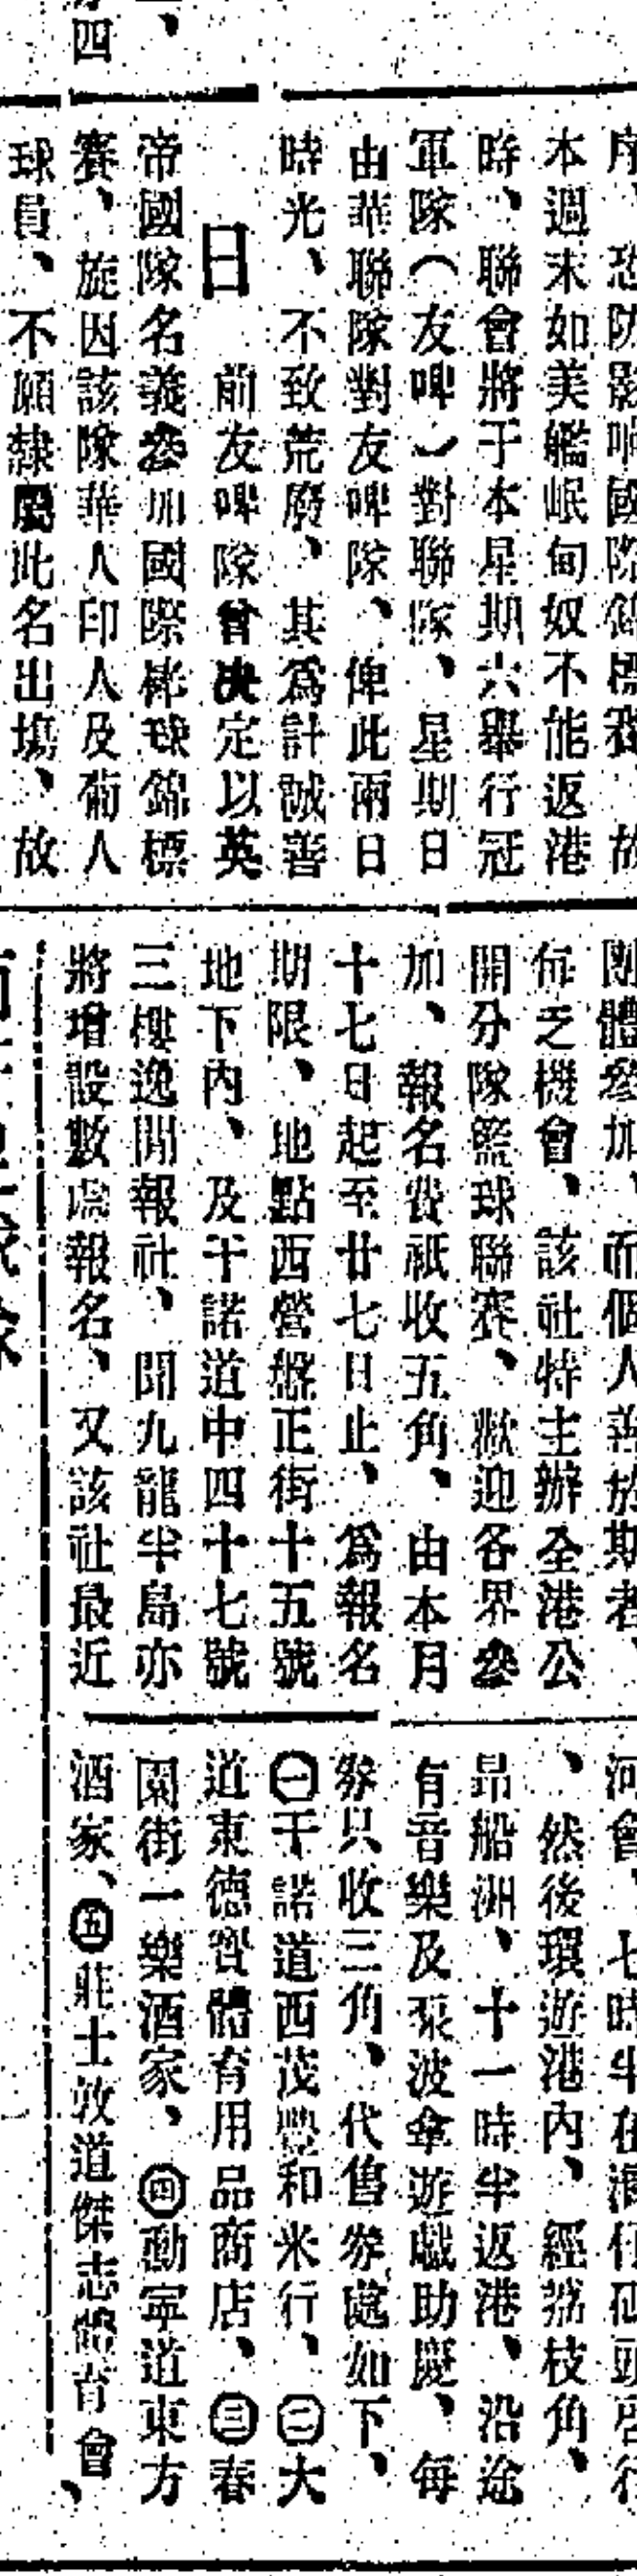 四
序、恐防影响國際錦標賽、故
本週末如美艦岷甸奴不能返港
時、聯會將于本星期六舉行冠
軍隊（友啤）對聯隊、星期日
由華聯隊對友啤隊、俾此兩日
時光、不致荒廢、其爲計誠善
日
前友啤隊曾决定以英
帝國隊名義參加國際棒球錦標
賽、旋因該隊華人印人及葡人
球員、不願隸屬此名出塲、故
團體參加、而個人善於斯者、
每乏機會、該社特主辦全港公
開分隊籃球聯賽、歡迎各界參
加、報名費祇收五角、由本月
十七日起至廿七日止、爲報名
期限、地點西營盤正街十五號
地下內、及干諾道中四十七號
三樓逸閒報社、聞九龍半島亦
將增設數處報名、又該社最近
河會、七時半在灣仔碼頭啓行
、然後環遊港內、經荔枝角、
昂船洲、十一時半返港、沿途
有音樂及泵波拿遊戲助慶、每
券只收三角、代售券處如下、
㊀干諾道西茂豐和米行、㊁大
道東德賢體育用品商店、㊂春
園街一樂酒家、㊃勳寧道東方
酒家、㊄莊士敦道傑志體育會、